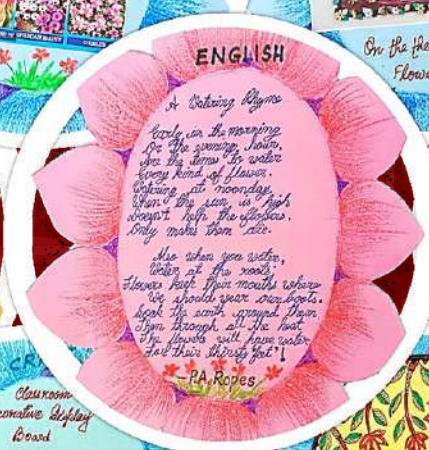 ENGLISH
A Watering Rhyme
Early in the morning
Or the evening hour,
Are the times to water
Every kind of flower.
Watering at noonday,
When the sun is high
Doesn't help the flowers.
Only makes them die.
Also when you water,
Water at the roots;
Flowers keep their mouths where
We should wear our boots.
Soak the earth around them
Then through all the heat
The flowers will have water
For their thirsty feet'!
-P.A.Ropes
On the the
Flowe
Classroom
Display
Board